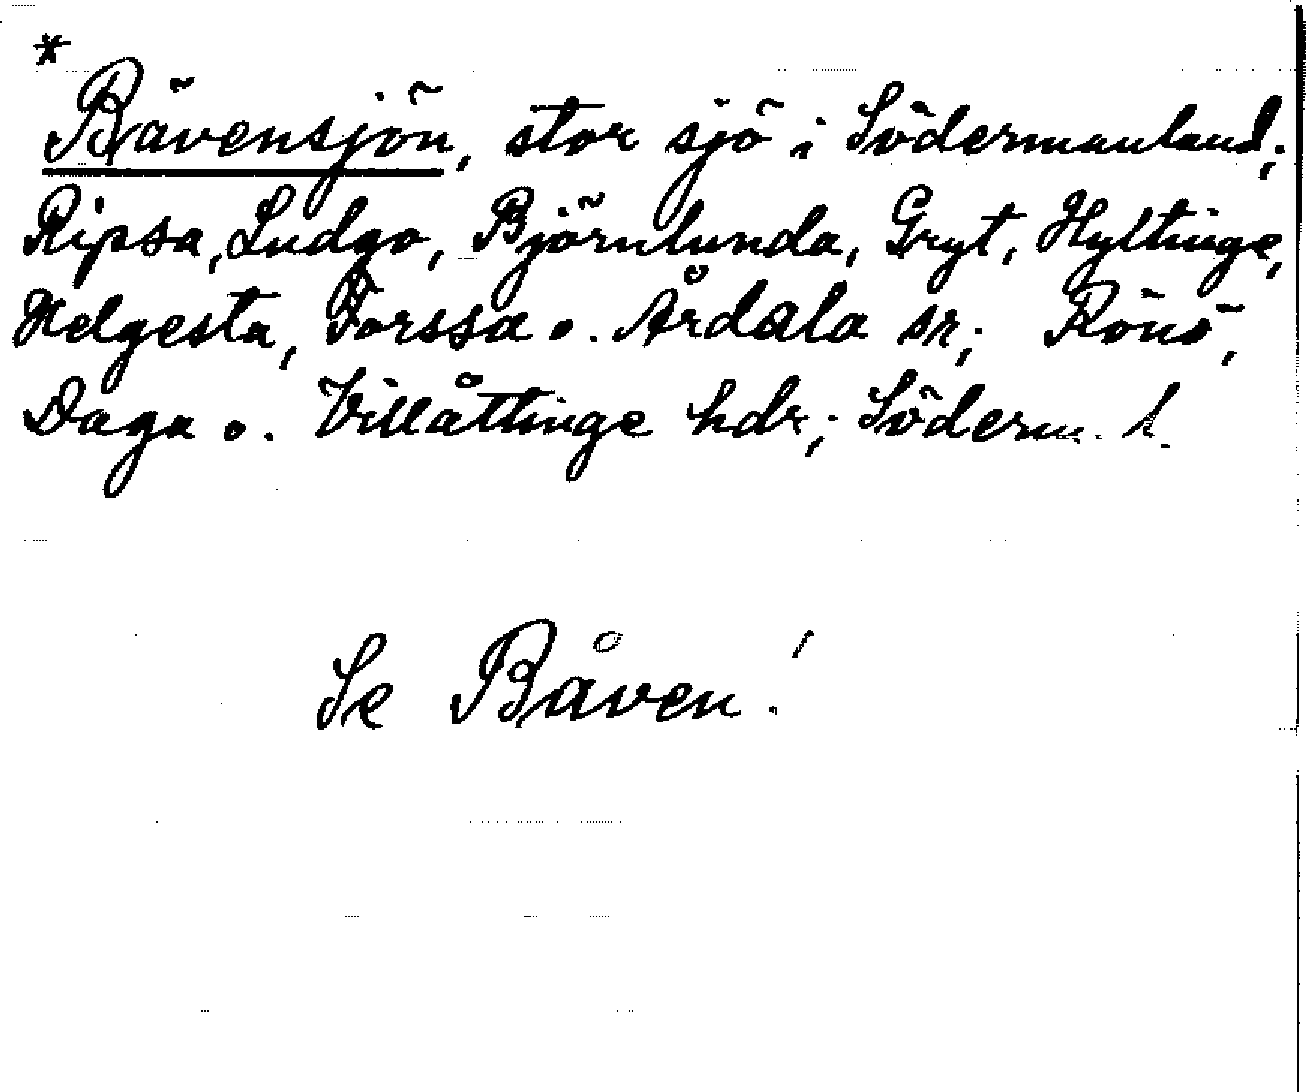 *
Bävensjön, stor sjö i Södermanland;
Ripsa, Ludgo, Björnlunda, Gryt, Hyltinge,
Helgesta, Forssa o. Årdala sr; Rönö,
Daga o. Villåttinge hdr; Söderm. l.
Se Båven!